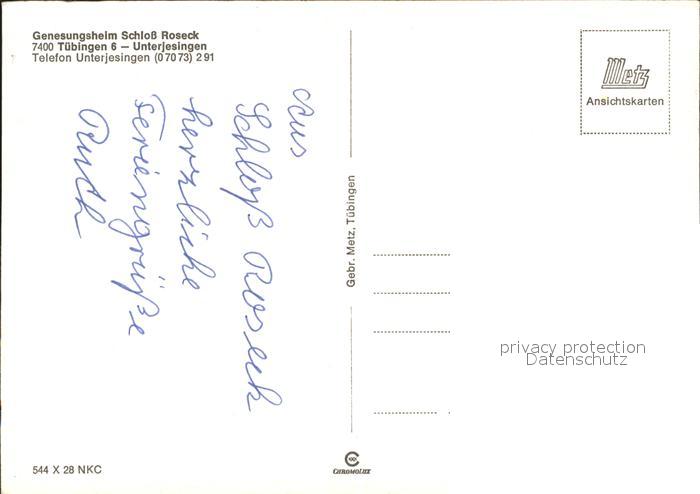 Genesungsheim Schloß Roseck
7400 Tübingen 6 — Unterjesingen
Telefon Unterjesingen (07073) 291
Aus
Schloß Roseck
herzliche
Feriengrüße
Ruth
Gebr. Metz, Tübingen
Metz
Ansichtskarten
privacy protection
Datenschutz
544 X 28 NKC
CHROMOLUX